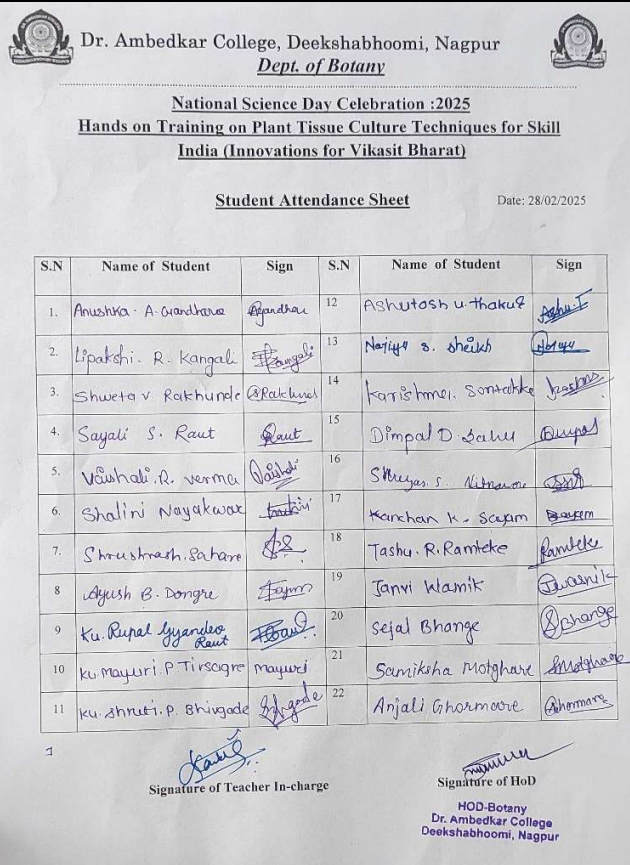 Dr. Ambedkar College, Deekshabhoomi, Nagpur
Dept. of Botany
National Science Day Celebration :2025
Hands on Training on Plant Tissue Culture Techniques for Skill
India (Innovations for Vikasit Bharat)
Student Attendance Sheet Date: 28/02/2025
S.N Name of Student Sign S.N Name of Student Sign
1. Anushka. A. Gandhare 12 Ashutosh U. Thakur Ashu.T
2. Lipakshi. R. Kangali Kangali 13 Najiya S. Sheikh
3. Shweta V Rakhunde 14 Karishma. Sontakke
4. Sayali S. Raut Raut 15 Dimpal D. Sahu Dimpal
5. Vaishali. R. Verma Vaishali 16 Shreyas S.
6. Shalini Nayakwar 17 Kanchan K. Sayam Sayam
7. Shrushrash. Sahare 18 Tashu. R. Ramteke Ramteke
8 Ayush B. Dongre 19 Janvi Wasnik JWasnik
9 Ku. Rupal Gyandeo Raut 20 Sejal Bhange SBhange
10 Ku. Mayuri. P. Tirsagre Mayuri 21 Samiksha Motghare SMotghare
11 Ku. Shruti. P. Bhivgade 22 Anjali Ghormare Ghormare
Signature of Teacher In-charge Signature of HoD
HOD-Botany
Dr. Ambedkar College
Deekshabhoomi, Nagpur